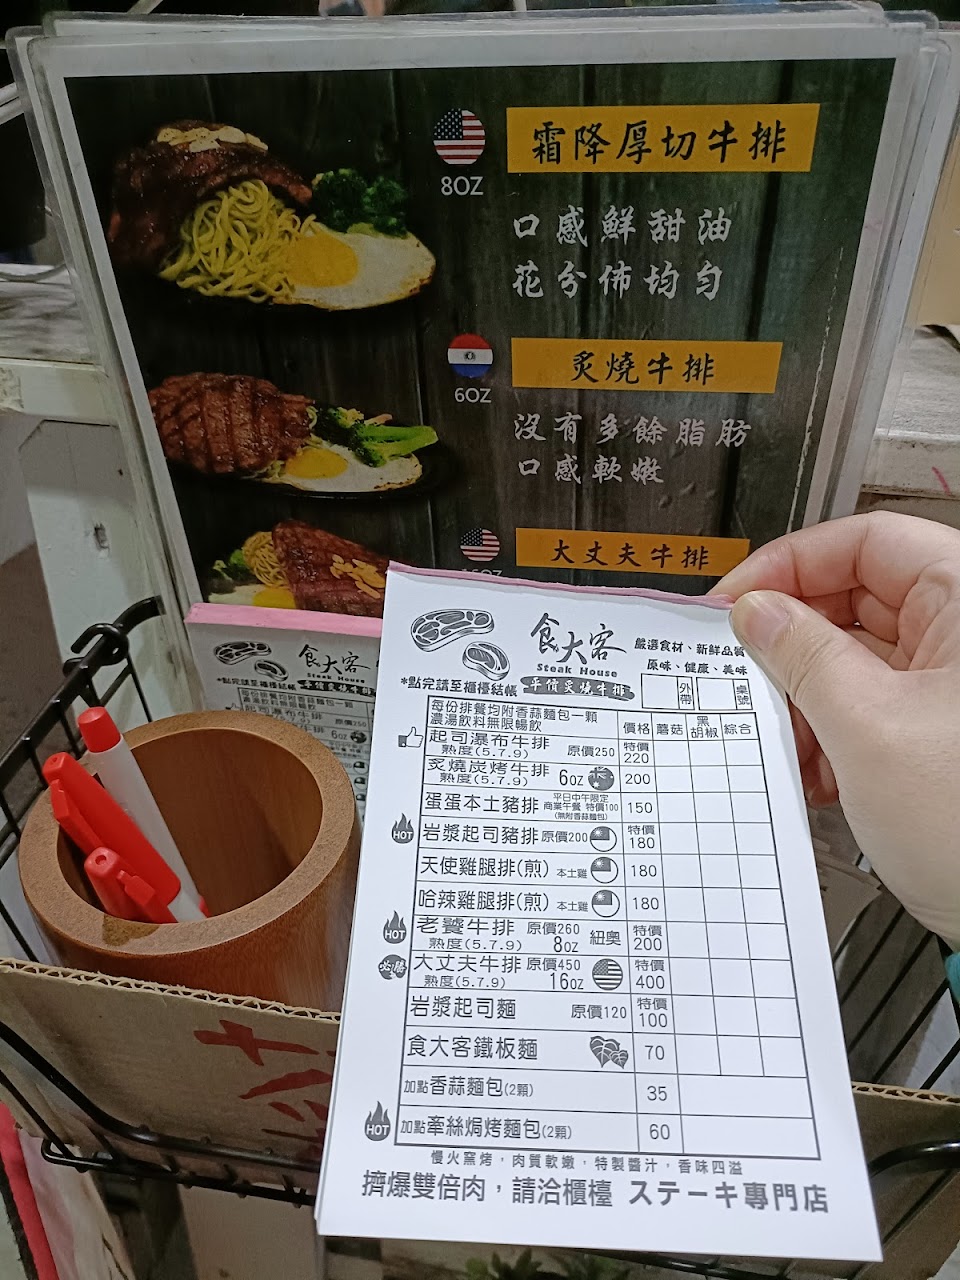 8OZ
霜降厚切牛排
口感鮮甜油
花分佈均勻
6OZ
炙燒牛排
沒有多餘脂肪
口感軟嫩
大丈夫牛排
食大客
Steak House
*點完請至櫃檯結帳
平價炙燒牛排
每份排餐均附香蒜麵包一顆
濃湯飲料無限暢飲
起司瀑布牛排
原價250
6oz
食大客
Steak House
嚴選食材、新鮮品質
原味、健康、美味
*點完請至櫃檯結帳 平價炙燒牛排
外帶 桌號
每份排餐均附香蒜麵包一顆
濃湯飲料無限暢飲
價格 蘑菇 黑胡椒 綜合
起司瀑布牛排 原價250 特價
熟度(5.7.9) 220
炙燒炭烤牛排 6oz 200
熟度(5.7.9)
蛋蛋本土豬排 平日中午限定 商業午餐 特價100 (無附香蒜麵包) 150
HOT 岩漿起司豬排 原價200 特價 180
天使雞腿排(煎) 本土雞 180
哈辣雞腿排(煎) 本土雞 180
HOT 老饕牛排 原價260 紐奧 特價
熟度(5.7.9) 8oz 200
必勝 大丈夫牛排 原價450 特價
熟度(5.7.9) 16oz 400
岩漿起司麵 原價120 特價 100
食大客鐵板麵 70
加點香蒜麵包(2顆) 35
HOT 加點牽絲焗烤麵包(2顆) 60
慢火窯烤，肉質軟嫩，特製醬汁，香味四溢
擠爆雙倍肉，請洽櫃檯 ステーキ專門店